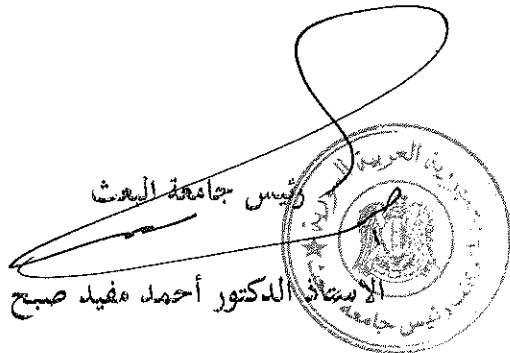 رئيس جامعة البعث
الاستاذ الدكتور أحمد مفيد صبح
الجمهورية العربية السورية
رئيس جامعة